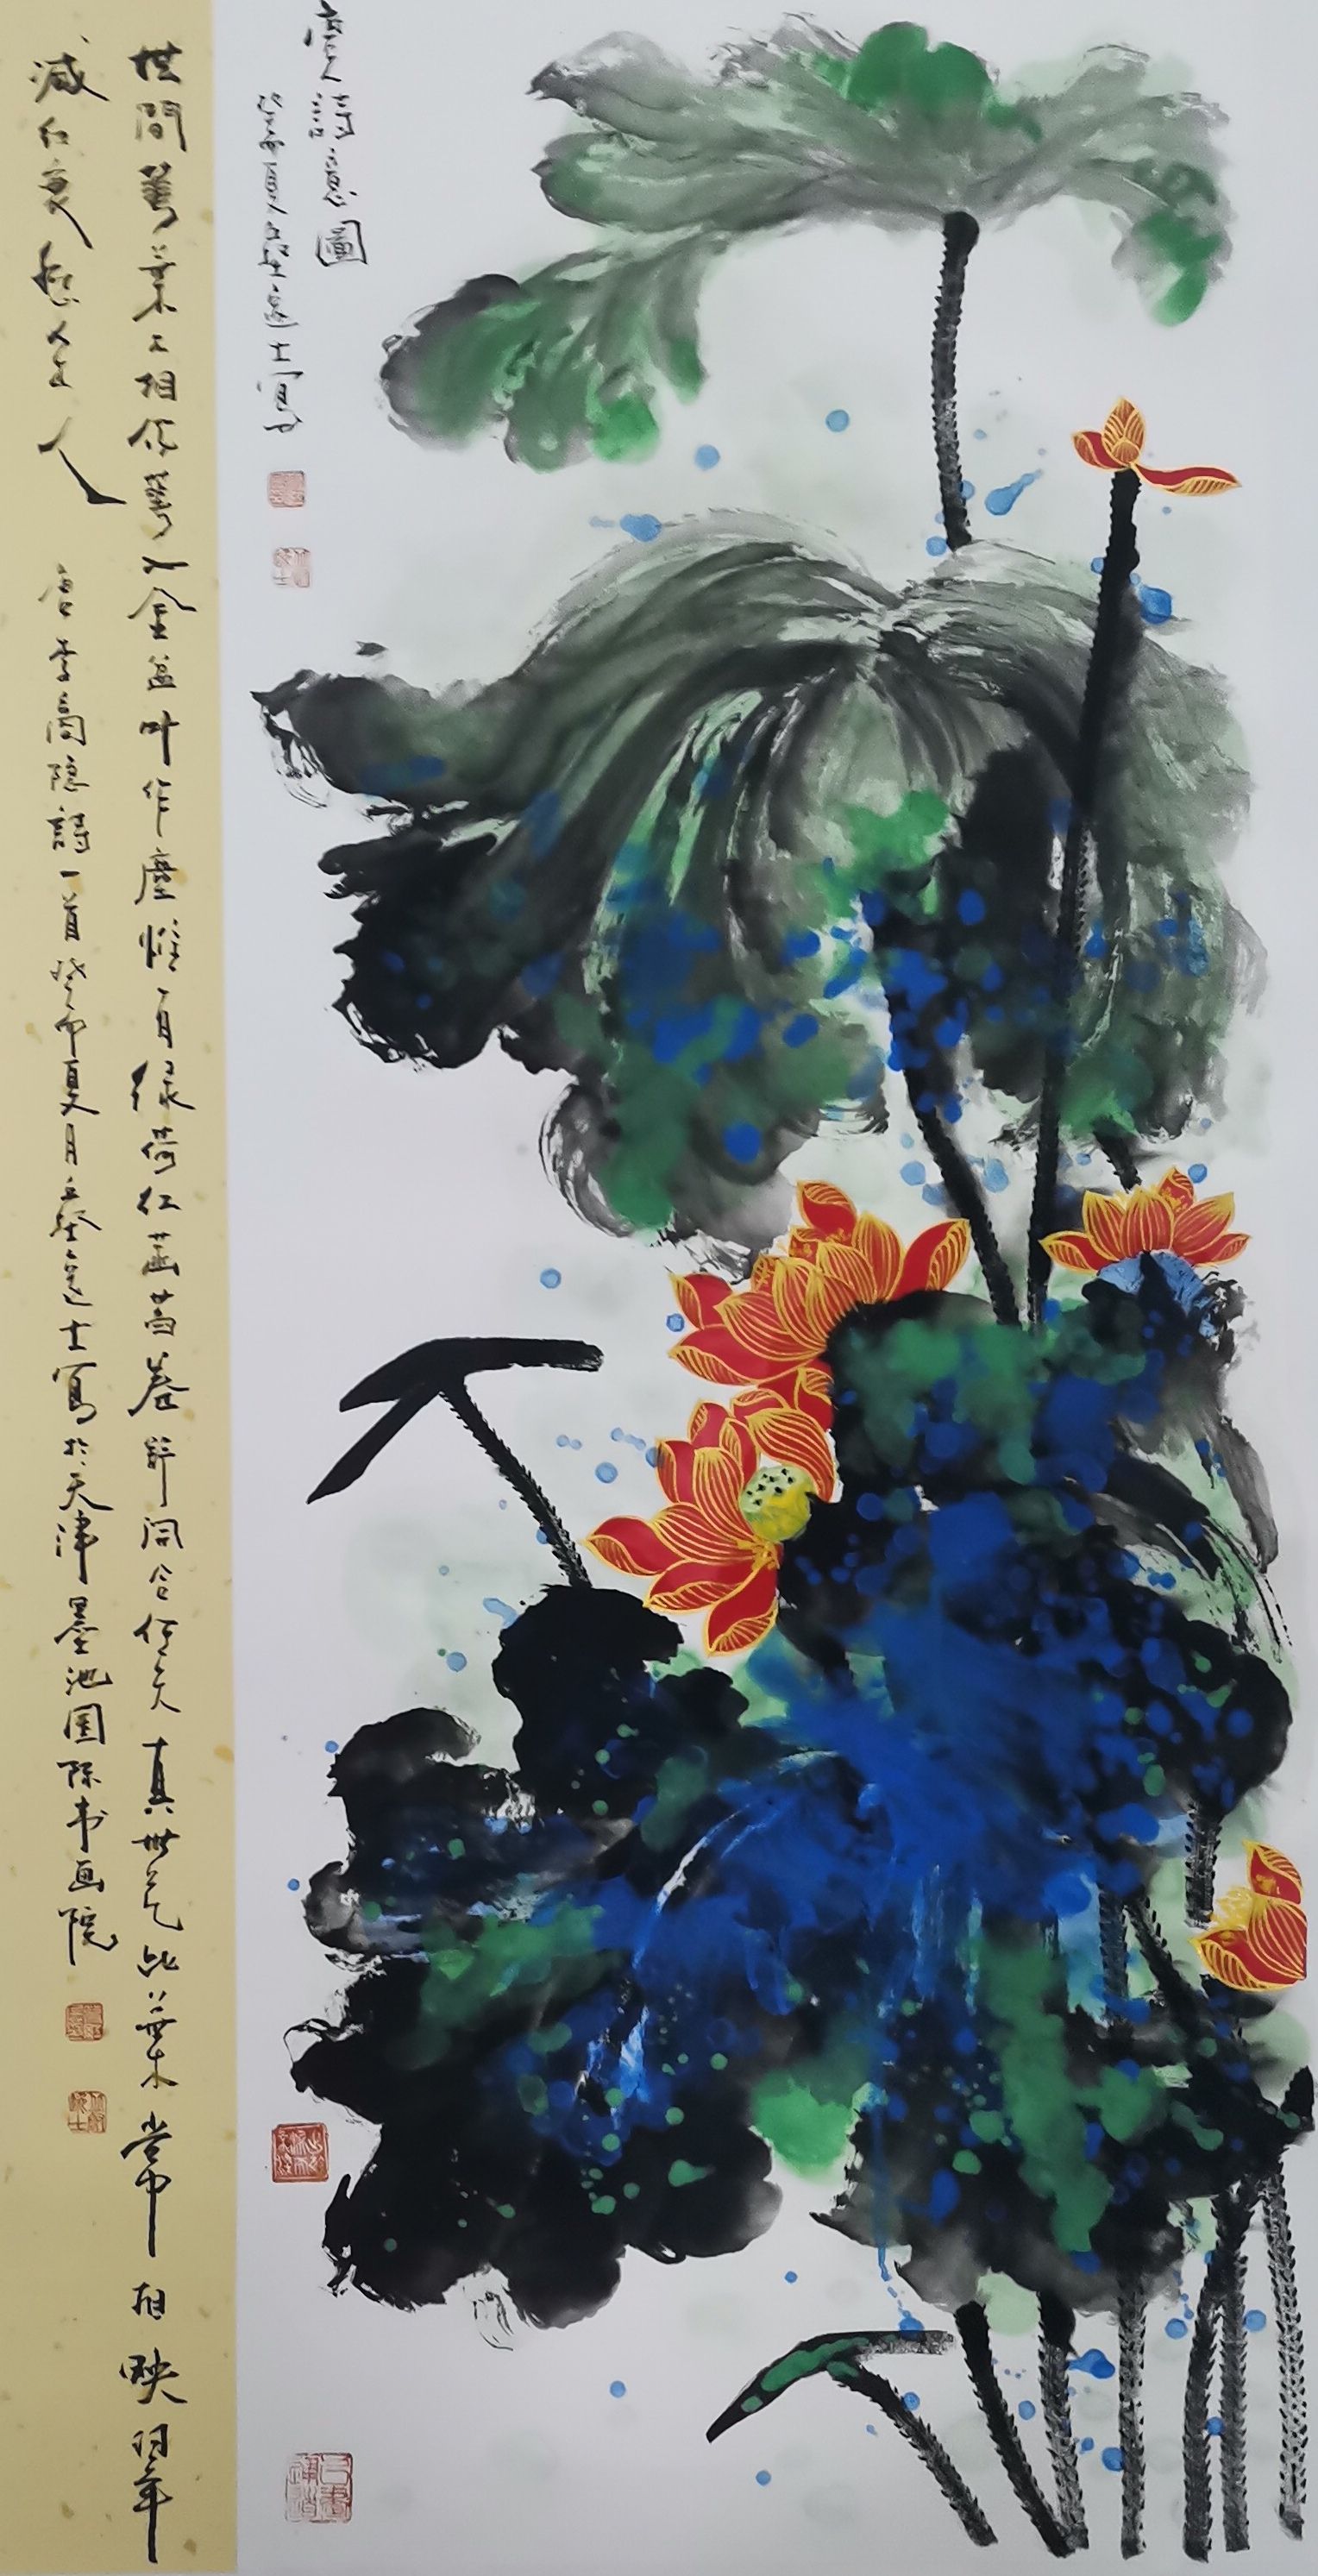 唐人詩意圖
癸卯夏丘壑逸士寫
世間蕐葉不相伦蕐入金盆叶作塵惟有绿荷红菡萏卷舒開合任天真此花此葉常相映翠
減红衰愁坐人 唐李商隐詩一首癸卯夏月丘壑逸士寫於天津墨池国际书画院